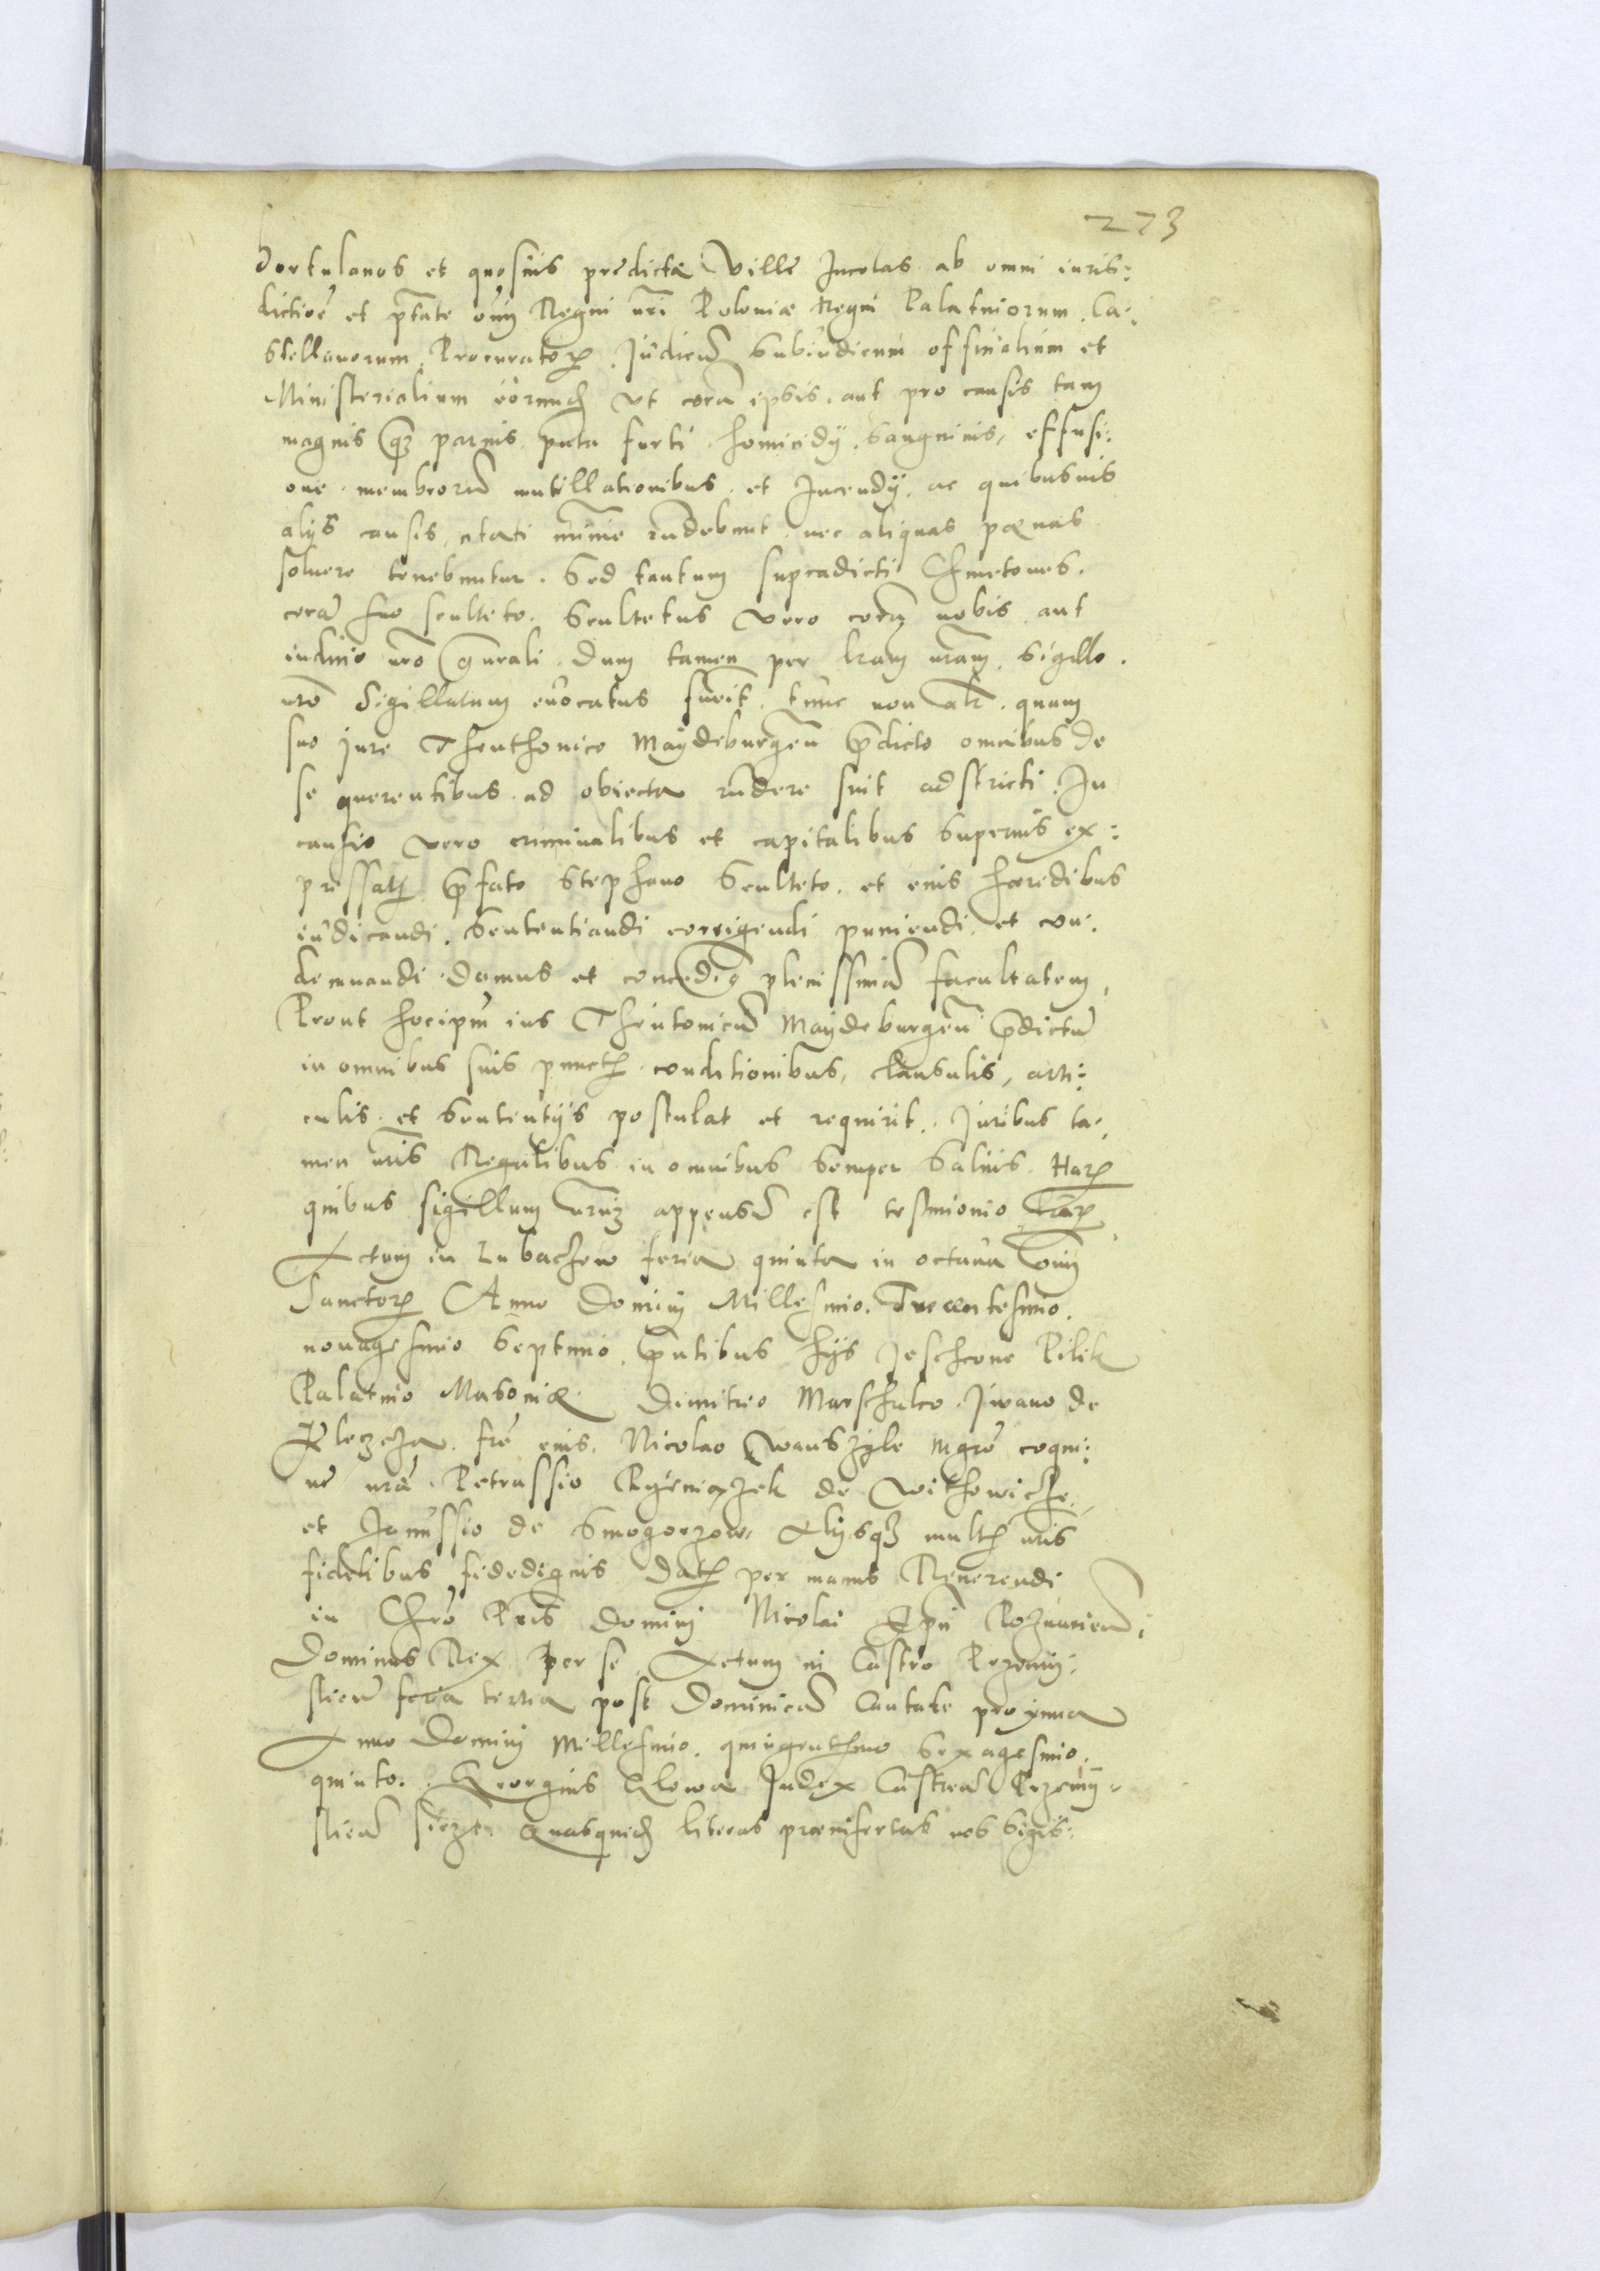 273
Hortulanos et quosuis predictæ Ville Incolas ab omni iuris:
dictioe et ptate oim Regni nri Poloniæ Regni Palatinorum, Ca:
stellanorum, Procurator, Judicu Subiudicum officialium et
Ministerialium eorund ut cora ipsis, aut pro causis tam
magnis q parnis puta furti, homicidy, Sangninis, effusi:
one, membroru mutillationibus, et Incendy, ac quibusuis
alys causis, citati minime rndebunt, nec aliquas pœnas
soluere tenebuntur. Sed tantum supradicti Chmetones.
cora suo sculteto. Scultetus vero cora nobis aut
iudicio nro gnrali, dum tamen per lram nram, sigillo.
nro Sigillatum euocatus fuerit, tunc non alr. quam
suo jure Theuthonico Maydeburgen pdicto omnibus de
se querentibus ad obiecta rndere sint adstricti. In
causis vero criminalibus et capitalibus superius ex:
pressat pfato Stephano Sculteto, et eius hœredibus
iudicandi, Sententiandi corrigendi puniendi, et con:
demnandi damus et concedi plenissima facultatem,
Prout hocipm ius Theutonicu Maydeburgen pdictu
in omnibus suis punct conditionibus, clausulis, arti:
culis et Sententys postulat et requirit, Juribus ta:
men nris Regalibus in omnibus Semper Saluis. Har
quibus sigillum nrum appensu est testimonio lrar
Actum in Lubaczow feria quinta in octaua oim
Sanctor Anno Dominy Millesimo. Trecentesimo.
nonagesimo Septimo, pntibus hys Jeschcone Pilik
Palatino Masoniæ Dimitrio Marschalco, Jwano de
fre eius. Nicolao mgro coqui:
ne nræ. Petrassio de Withowicze,
et Janussio de Smogorzow Alysq mult nris
fidelibus fidedignis Dat per manus Reuerendi
in Chro Pris Dominy Nicolai Epi Poznanien:
Dominus Rex per se. Actum in Castro Przemy:
slien feria tertia post Dominica Cantate proxima
Anno Dominy Millesimo. quingentesimo Sexagesimo,
quinto. Georgius Judex Castren Przemy:
slien Quasquid literas præinsertas nos Sigis: